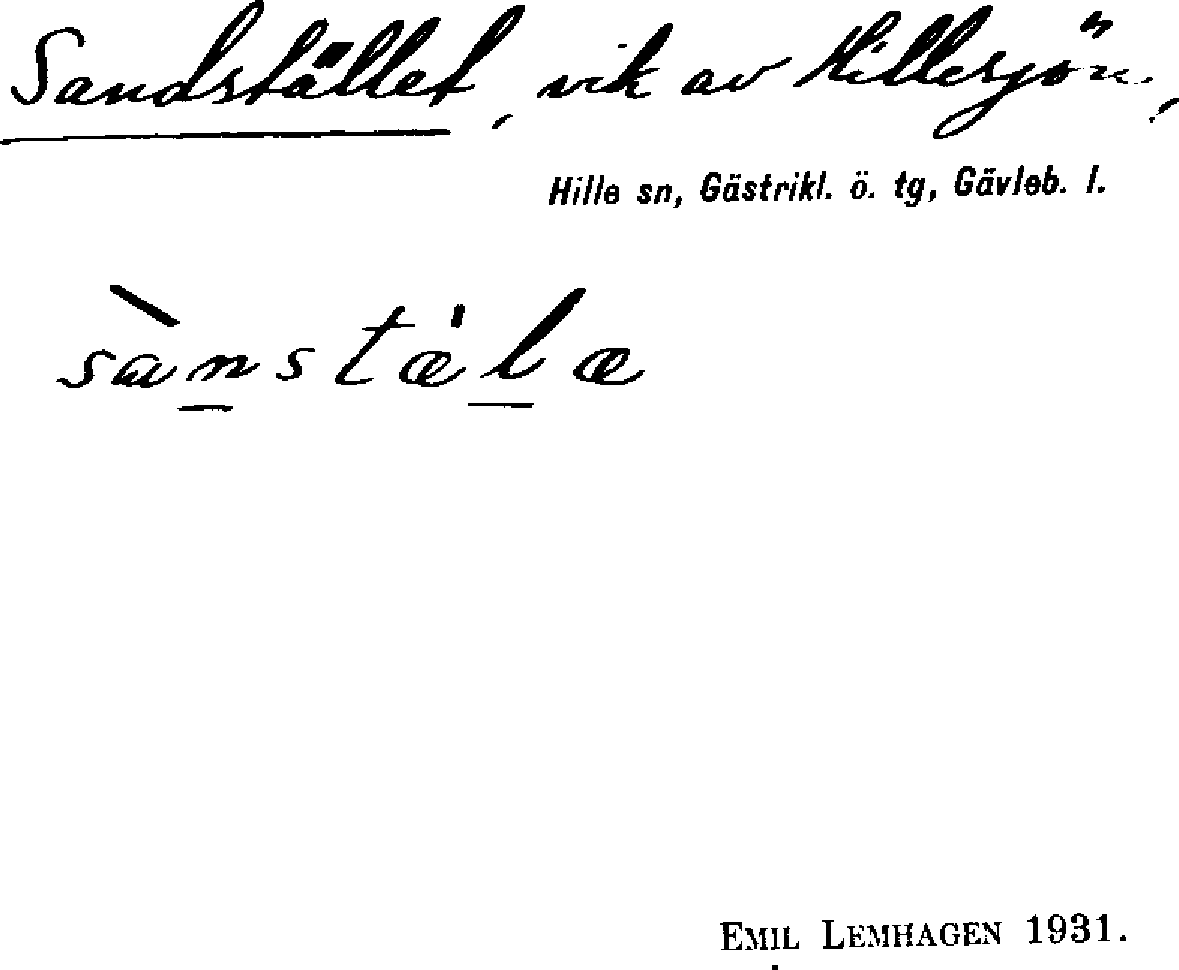 Sandstället, vik av Hillesjön,
Hille sn, Gästrikl. ö. tg, Gävleb. l.
sànstæ'læ
EMIL LEMHAGEN 1931.